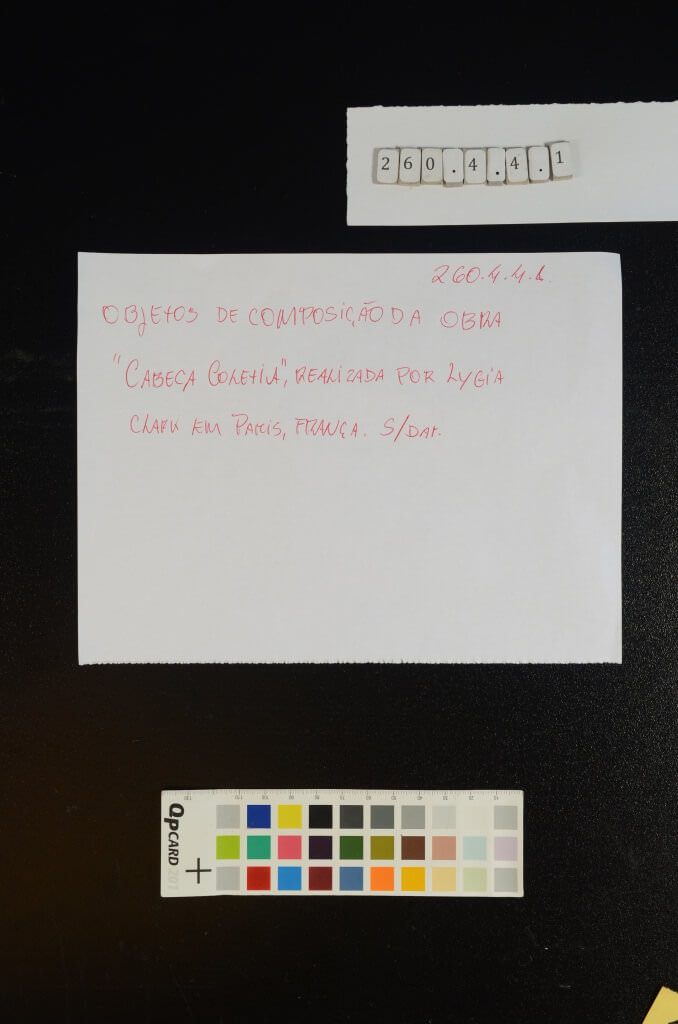 260.4.4.1
260.4.4.1.
OBJETOS DE COMPOSIÇÃO DA OBRA
"CABEÇA COLETIVA", REALIZADA POR LYGIA
CLARK EM PARIS, FRANÇA. S/DAT.
QPCARD 201